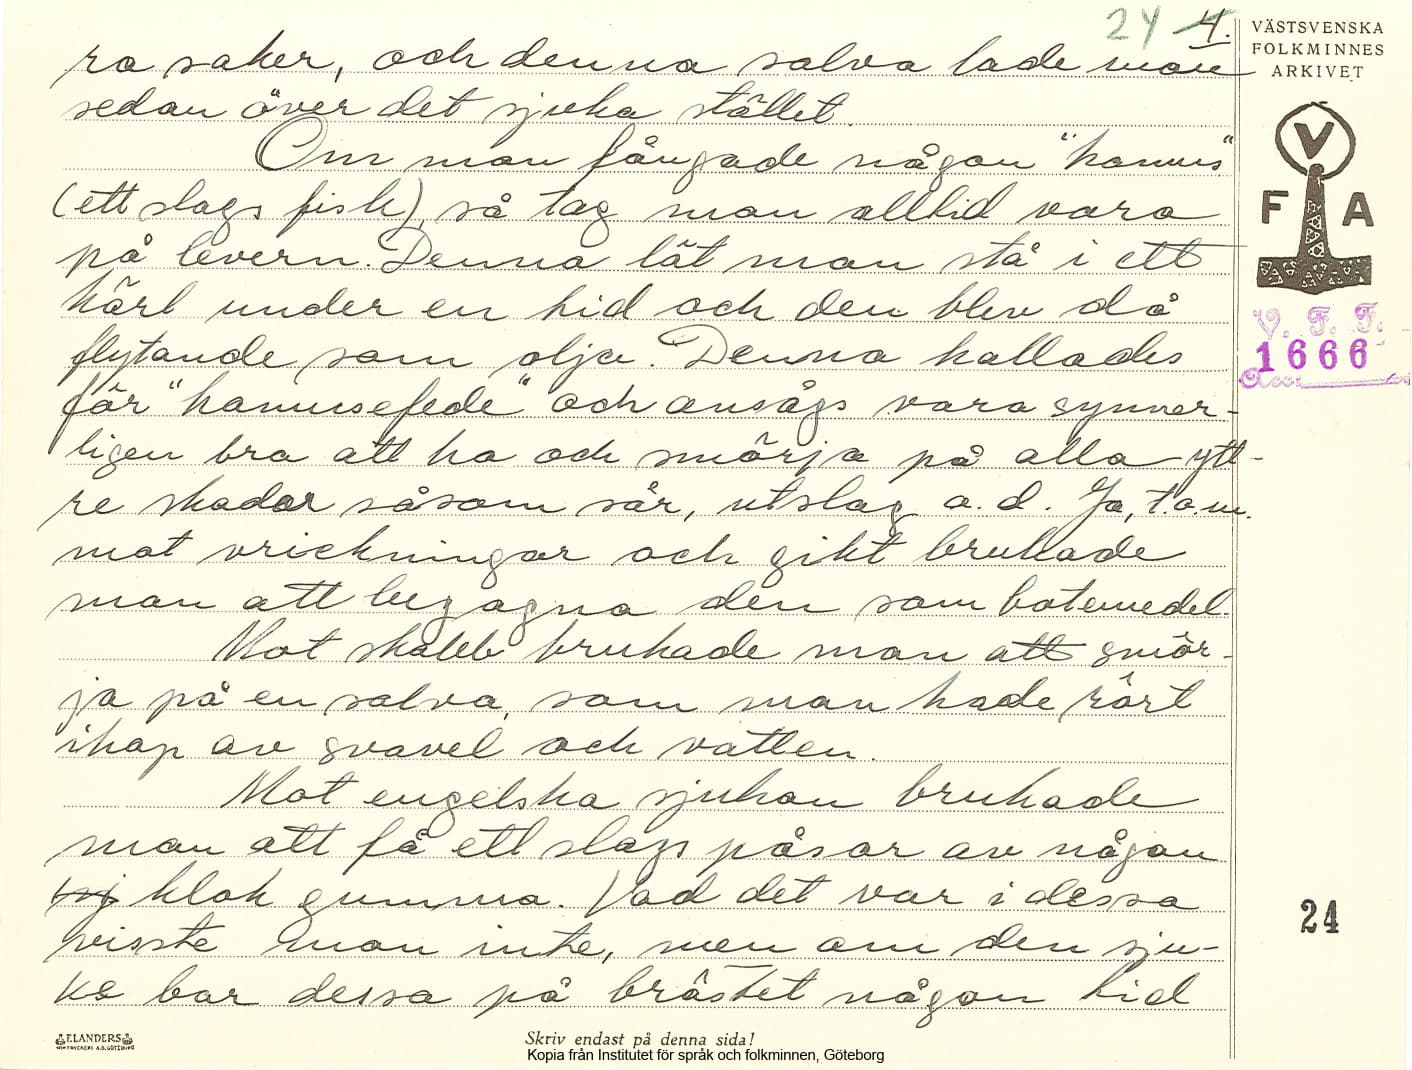 24 4.
VÄSTSVENSKA
FOLKMINNES
ARKIVET
V
F A
V. F. F.
1666
Acc:
ra saker, och denna salva lade man
sedan över det sjuka stället.
Om man fångade någon "hamus"
(ett slags fisk), så tog man alltid vara
på levern. Denna lät man stå i ett
kärl under en tid och den blev då
flytande som olja. Denna kallades
för "hamusefede" och ansågs vara synner-
ligen bra att ha och smörja på alla ytt-
re skador såsom sår, utslag o.d. Ja, t.o.m.
mot vrickningar och gikt brukade
man att begagna den som botemedel.
Mot skabb brukade man att smör-
ja på en salva, som man hade rört
ihop av svavel och vatten.
Mot engelska sjukan brukade
man att få ett slags påsar av någon
klok gumma. Vad det var i dessa
visste man inte, men om den sju-
ke bar dessa på bröstet någon tid
24
ELANDERS
Skriv endast på denna sida!
Kopia från Institutet för språk och folkminnen, Göteborg